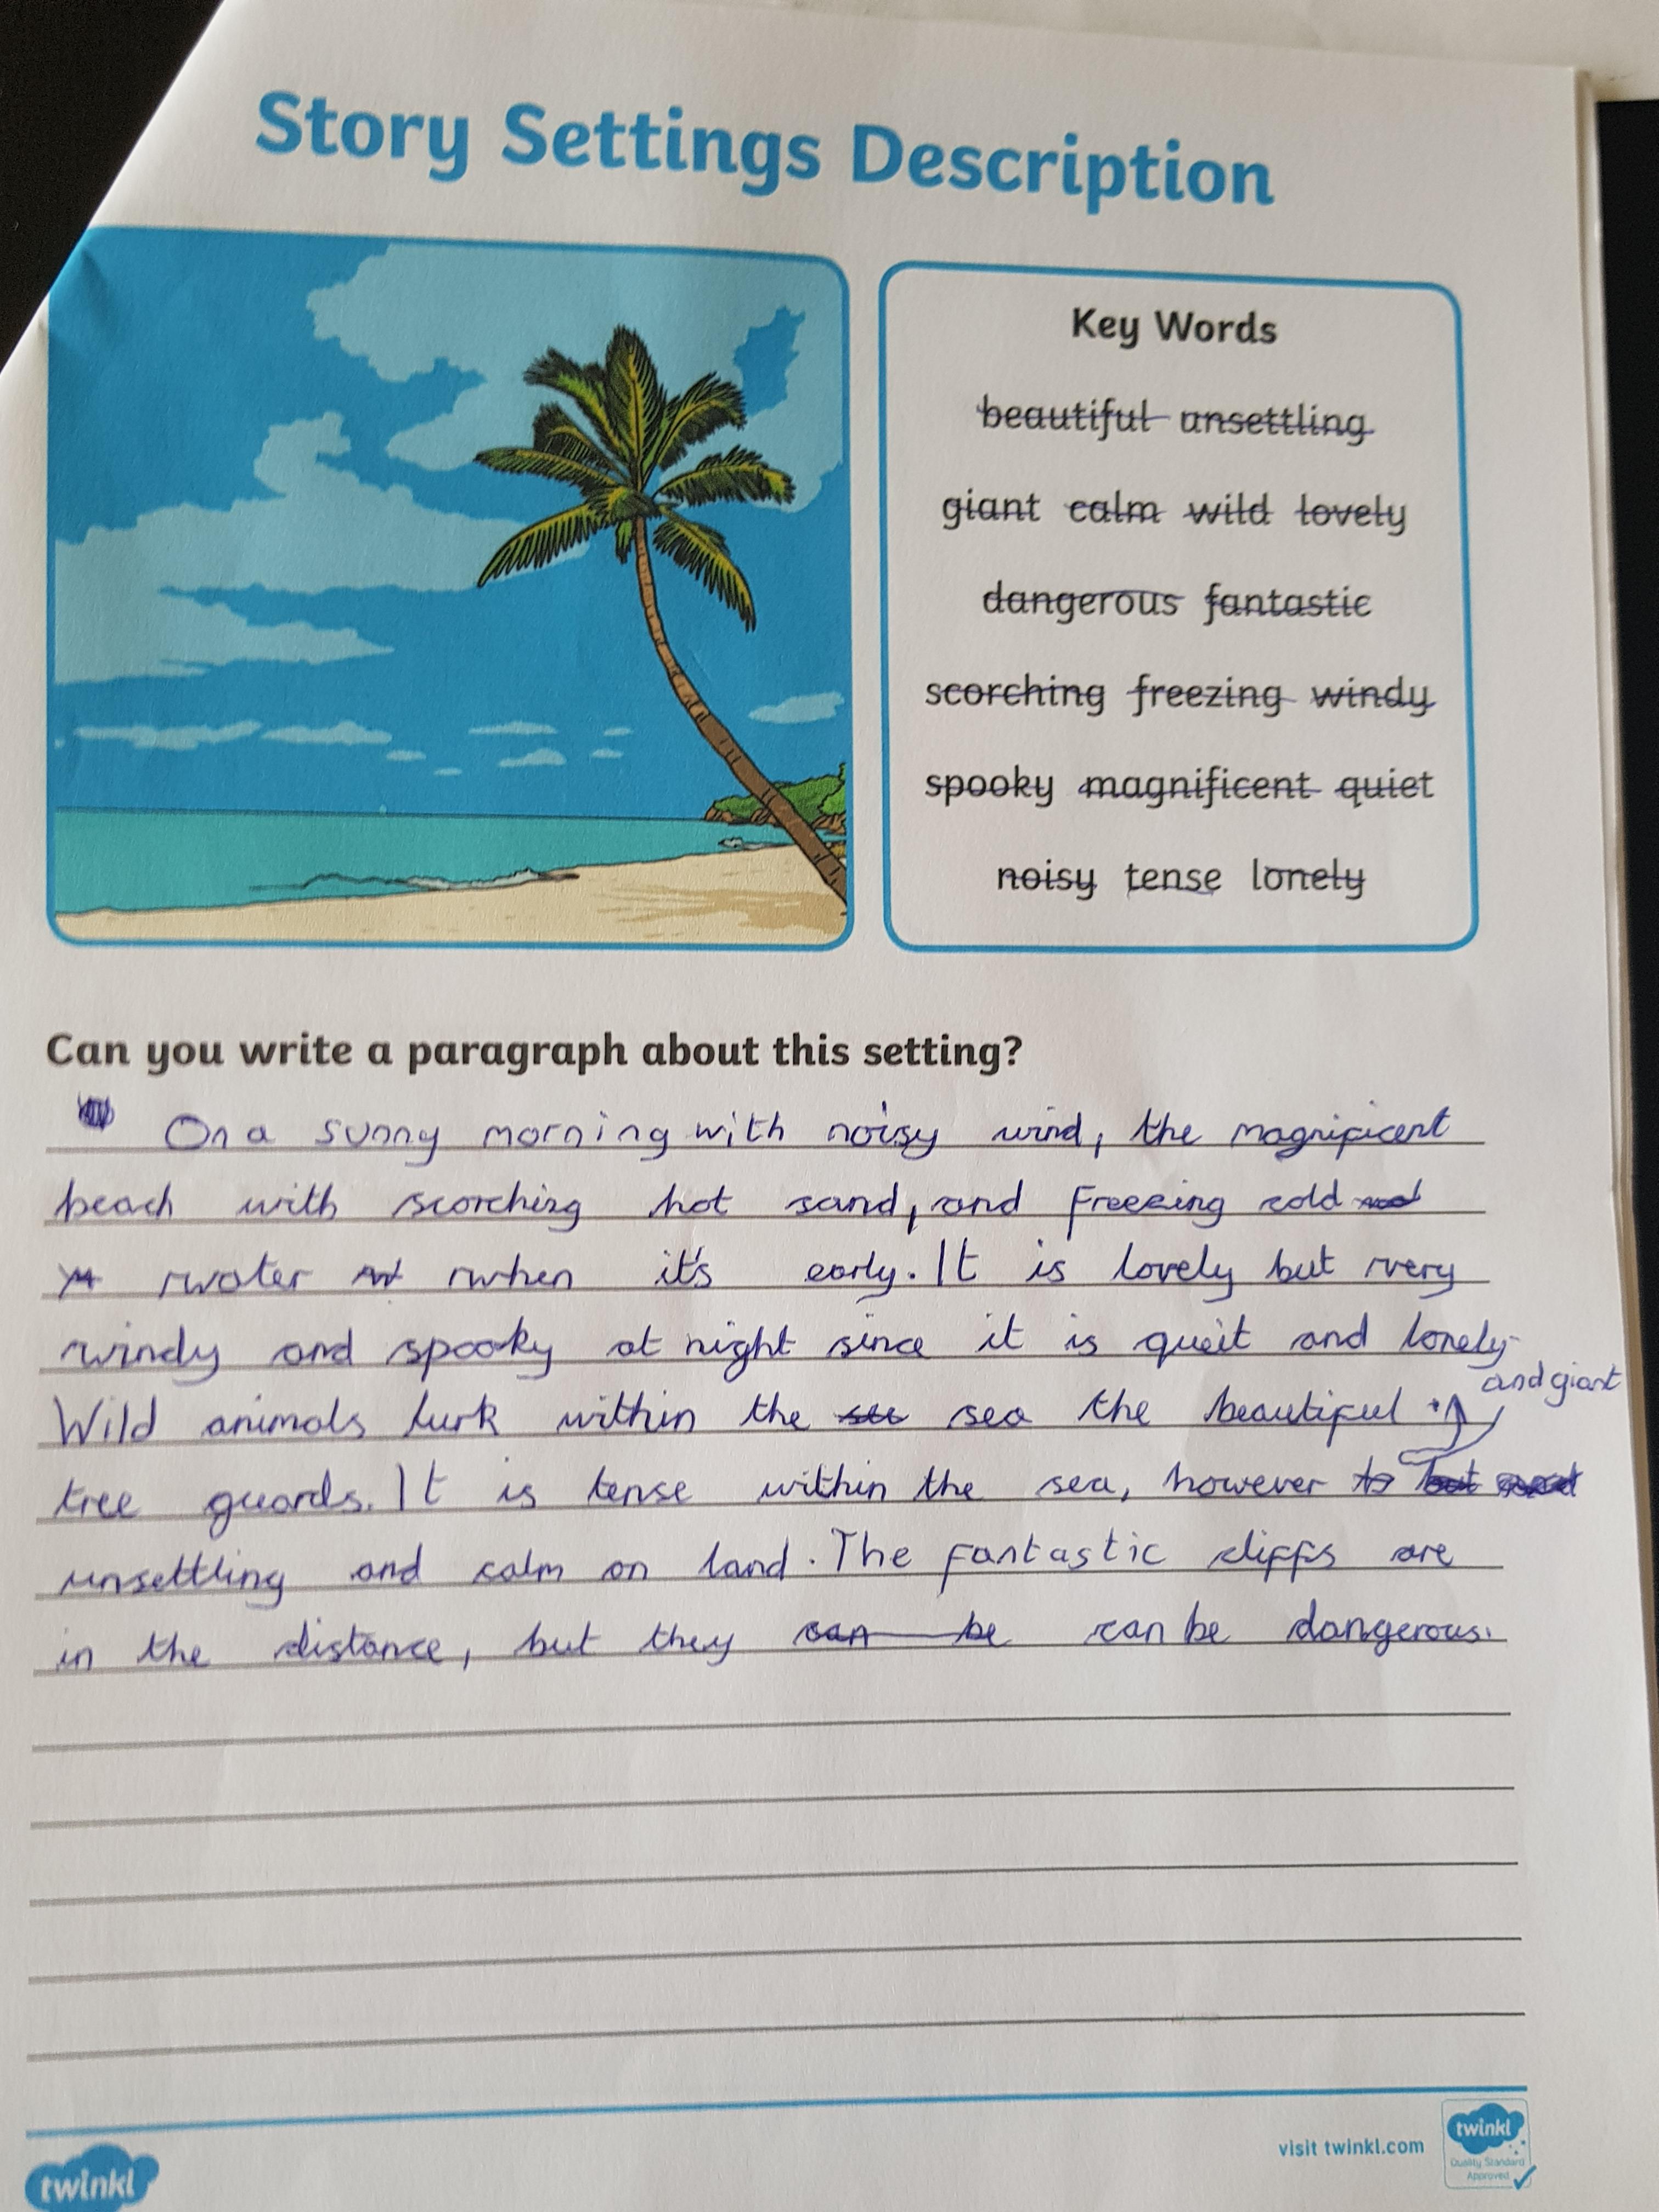 Story Settings Description
Key Words
beautiful unsettling
giant calm wild lovely
dangerous fantastic
scorching freezing windy
spooky magnificent quiet
noisy tense lonely
Can you write a paragraph about this setting?
On a sunny morning with noisy wind, the magnificent
beach with scorching hot sand, and freezing cold
water when it's early. It is lovely but very
windy and spooky at night since it is queit and lonely
and giant
Wild animals lurk within the see sea the beautiful
tree guards. It is tense within the sea, however to but
unsettling and calm on land. The fantastic cliffs are
in the distance, but they can be can be dangerous.
twinkl
visit twinkl.com
twinkl
Quality Standard
Approved